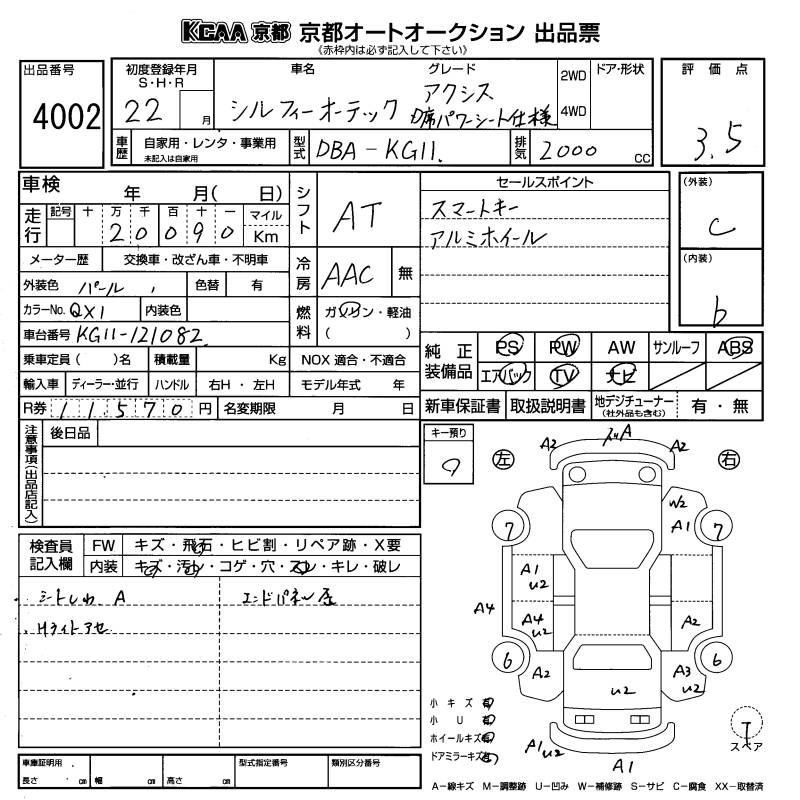 KCAA 京都 京都オートオークション 出品票
《赤枠内は必ず記入して下さい》
出品番号
4002
初度登録年月
S・H・R
22 月
車名
シルフィーオーテック
グレード
アクシス
D席パワーシート仕様
2WD
4WD
ドア・形状
評価点
3.5
車歴
自家用・レンタ・事業用
未記入は自家用
型式
DBA-KG11.
排気
2000 cc
車検 年 月( 日)
走行
記号 十 万 千 百 十 一 マイル
2 0 0 9 0 Km
メーター歴 交換車・改ざん車・不明車
外装色 パール
色替 有
カラーNo. QX1
内装色
車台番号 KG11-121082
乗車定員( )名
積載量 Kg
輸入車 ディーラー・並行 ハンドル 右H・左H
R券 11,570 円
名変期限 月 日
シフト AT
冷房 AAC 無
燃料 ガソリン・軽油
( )
NOX 適合・不適合
モデル年式 年
セールスポイント
スマートキー
アルミホイール
(外装)
C
(内装)
b
純正装備品
PS PW AW サンルーフ ABS
エアバック TV ナビ
新車保証書 取扱説明書
地デジチューナー
(社外品も含む)
有・無
注意事項(出品店記入)
後日品
キー預り
左
右
検査員記入欄
FW キズ・飛石・ヒビ割・リペア跡・X要
内装 キズ・汚れ・コゲ・穴・スレ・キレ・破レ
シートしわ A
Hライトアセ
エンドパネル歪
A2 A A2
W2
A1
7 7
A1
U2
A4
A4
U2
A2
6 6
A2
A3
U2
U2
A1 U2
A1
小キズ 有
小U 有
ホイールキズ 有
ドアミラーキズ 有
T
スペア
車庫証明用
長さ cm 幅 cm 高さ cm
型式指定番号
類別区分番号
A−線キズ M−調整跡 U−凹み W−補修跡 S−サビ C−腐食 XX−取替済